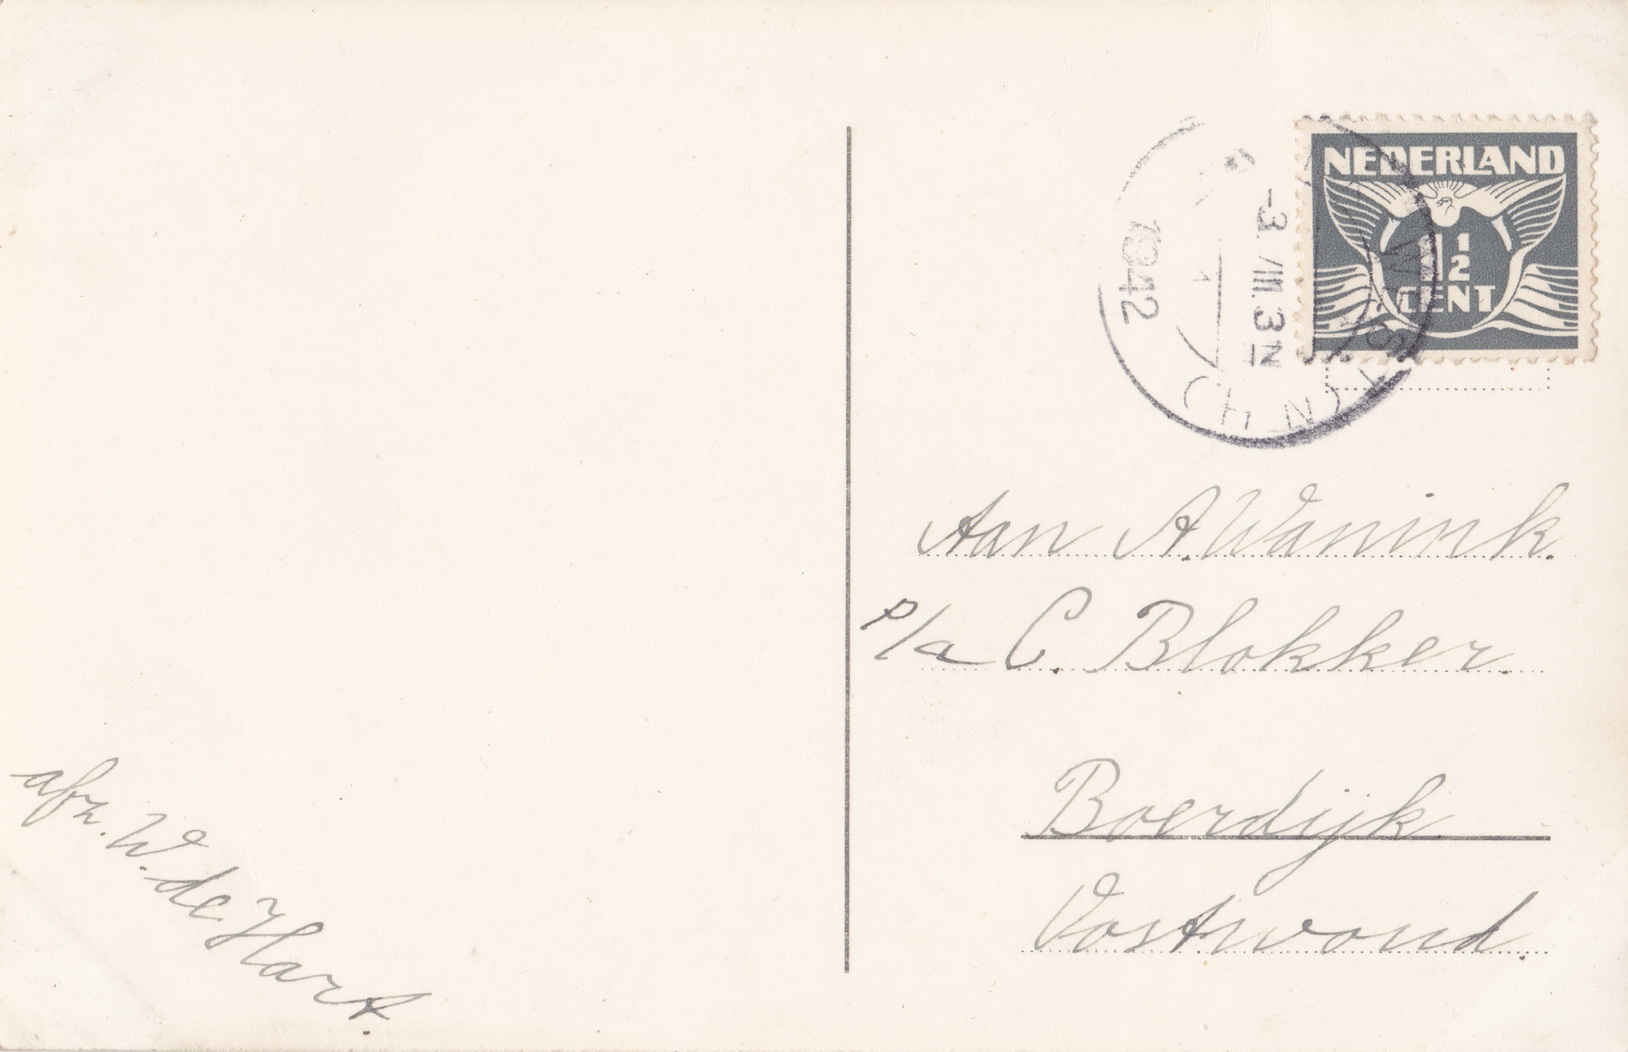 NEDERLAND
1 1/2
CENT
-3.VIII.3N
1942
(N H)
Aan A. Wanink.
p/a C. Blokker.
Boerdijk
Oostwoud.
afz. W. de Hart.